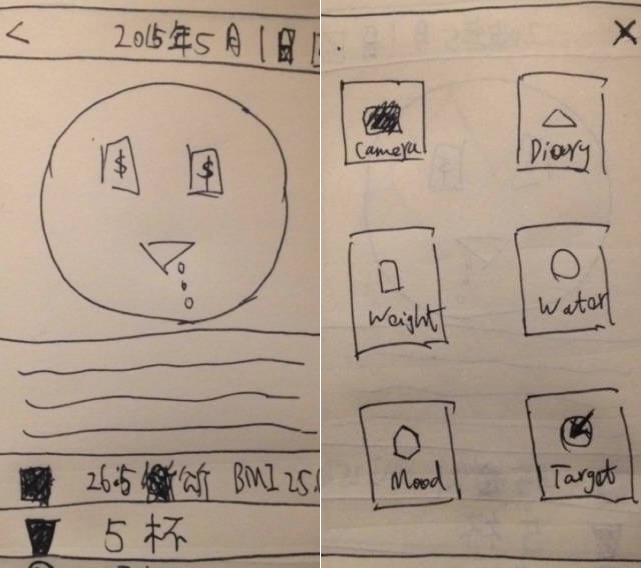 < 2015年5月1日
$ $
26.5 BMI 25.
5 杯
X
Camera Diary
Weight Water
Mood Target